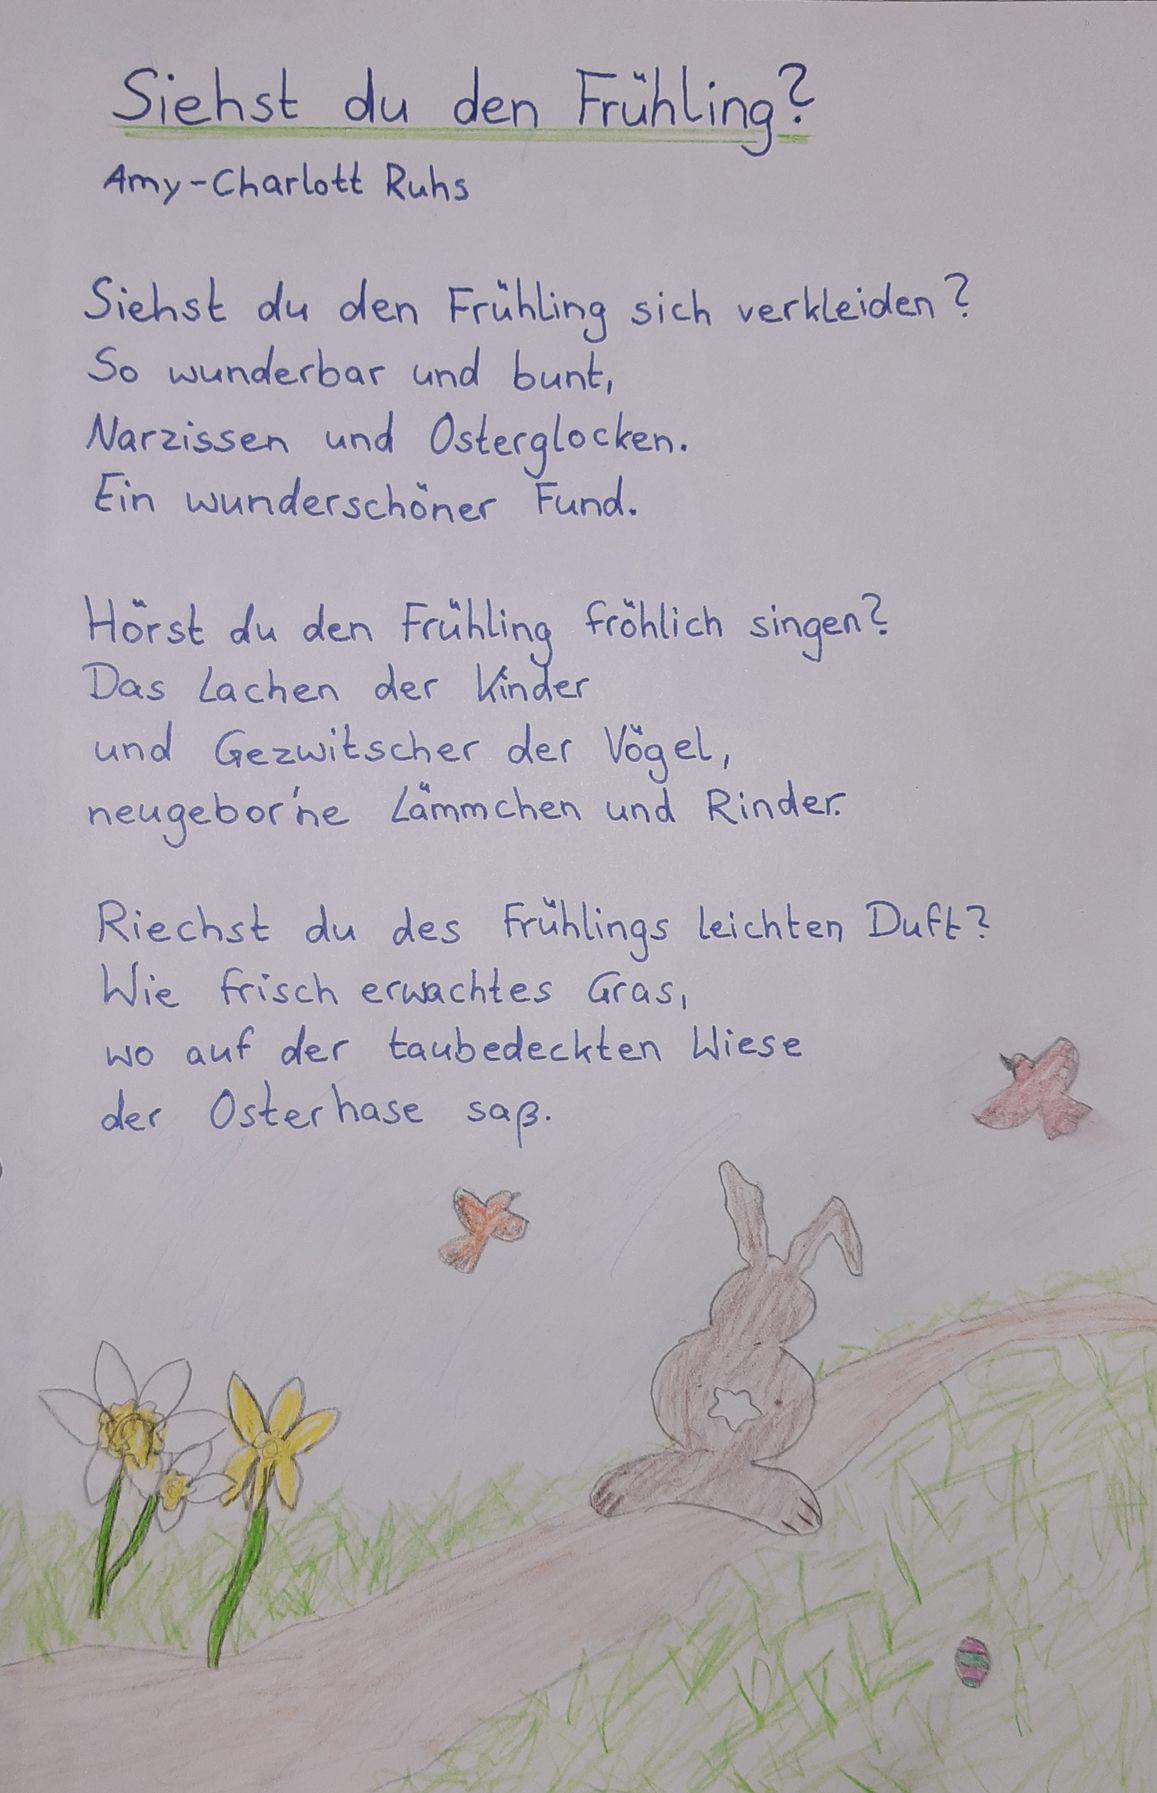 Siehst du den Frühling?
Amy-Charlott Ruhs
Siehst du den Frühling sich verkleiden?
So wunderbar und bunt,
Narzissen und Osterglocken.
Ein wunderschöner Fund.
Hörst du den Frühling fröhlich singen?
Das Lachen der Kinder
und Gezwitscher der Vögel,
neugebor'ne Lämmchen und Rinder.
Riechst du des Frühlings leichten Duft?
Wie frisch erwachtes Gras,
wo auf der taubedeckten Wiese
der Osterhase saß.